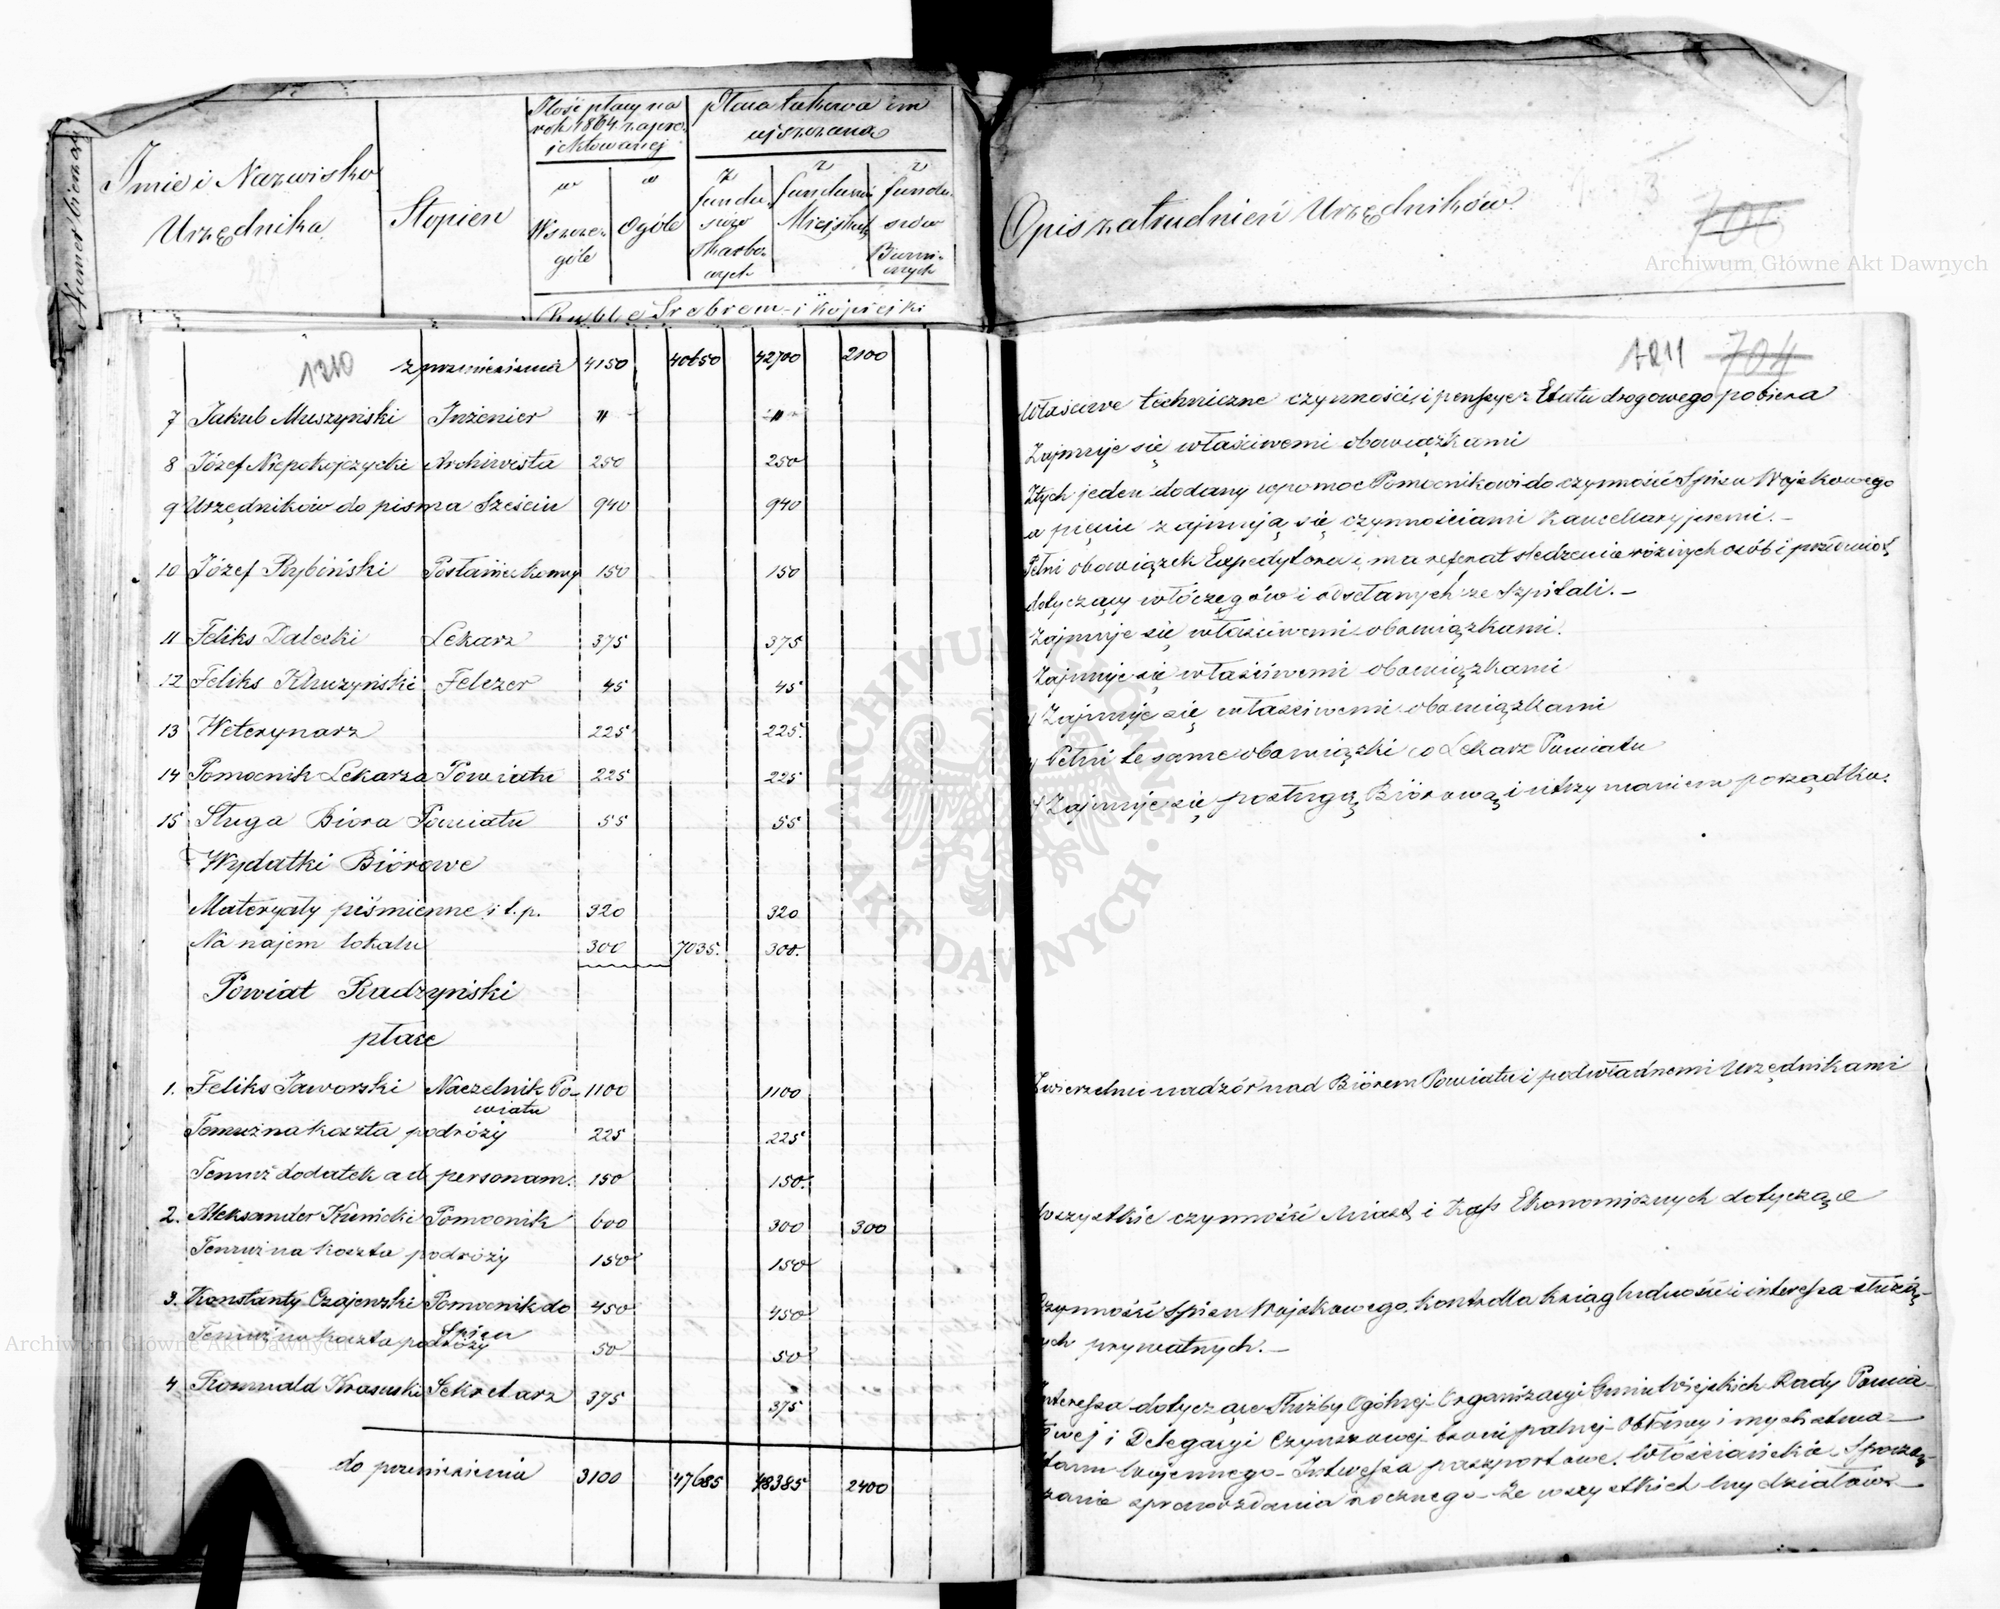 Numer bieżący
Imie i Nazwisko
Urzędnika
Stopień
Ilość płacy na
rok 1864 zapro-
jektowanej
w
Wszcze-
góle
w
Ogóle
Płaca takowa im
uiszczana
z
fundu-
szów
Skarbo-
wych
z
funduszów
Miejskich
z
fundu-
szów
Ruble Srebrem i Kopiejki
Opis zatrudnień Urzędników.
700
Archiwum Główne Akt Dawnych
1210
z przeniesienia 4150 40650 42700 2100
7 Jakub Muszyński Inżenier " "
8 Józef Niepokojczycki Archiwista 250 250
9 Urzędników do pisma Sześciu 940 940
10 Józef Rybiński 150 150
11 Feliks Dalecki Lekarz 375 375
12 Feliks Kluczyński Felczer 45 45
13 Weterynarz 225 225.
14 Pomocnik Lekarza Powiatu 225 225
15 Sługa Biora Powiatu 55 55
Wydatki Biórowe
Materyały piśmienne i t.p. 320 320
Na najem lokalu 300 7035. 300.
Powiat Radzyński
płace
1. Feliks Jaworski Naczelnik Po- 1100 1100
wiatu
Temuż na koszta podróży 225 225
Temuż dodatek ad personam. 150 150.
2. Aleksander Kunicki Pomocnik 600 300 300
Temuż na koszta podróży 150 150
3. Konstanty Czajewski Pomocnik do 450 450
Spisu
Temuż na koszta podróży 50 50
4 Romuald Krasuski Sekretarz 375 375
do przeniesienia 3100 47685 48385 2400
1211 704
Właściwe techniczne czynności, i pensye z Etatu drogowego pobiera
Zajmuje się właściwemi obowiązkami
Z tych jeden dodany w pomoc Pomocnikowi do czynność Spisu Wojskowego
a pięciu zajmują się czynnościami Kancellaryjnemi.-
Pełni obowiązek Expedytora i ma referat śledzenia różnych osób i
dotyczący włóczęgów i odsełanych ze Szpitali.-
Zajmuje się właściwemi obowiązkami.
Zajmuje się właściwemi obowiązkami
Zajmuje się właściwemi obowiązkami
Pełni te same obowiązki co Lekarz Powiatu
Zajmuje się posługą Biórową i utrzymaniem porządku.
Zwierzchni nadzór nad Biórem Powiatu i podwładnemi Urzędnikami
Wszystkie czynności Miast i Kass Ekonomicznych dotyczące
Czynności Spisu Wojskowego. Kontrolla ksiąg ludności i interessa służą-
cych prywatnych.-
Interessa dotyczące Służby Ogólnej- Organizacyi Gmin Wiejskich Rady Powia-
towej i Delegacyi Czynszowej- broni palnej- Obławy i
Stanu Wojennego- Interessa paszportowe. Włościańskie Sporzą-
dzanie sprawozdania rocznego- ze wszystkich
Archiwum Główne Akt Dawnych
ARCHIWUM GŁÓWNE AKT DAWNYCH